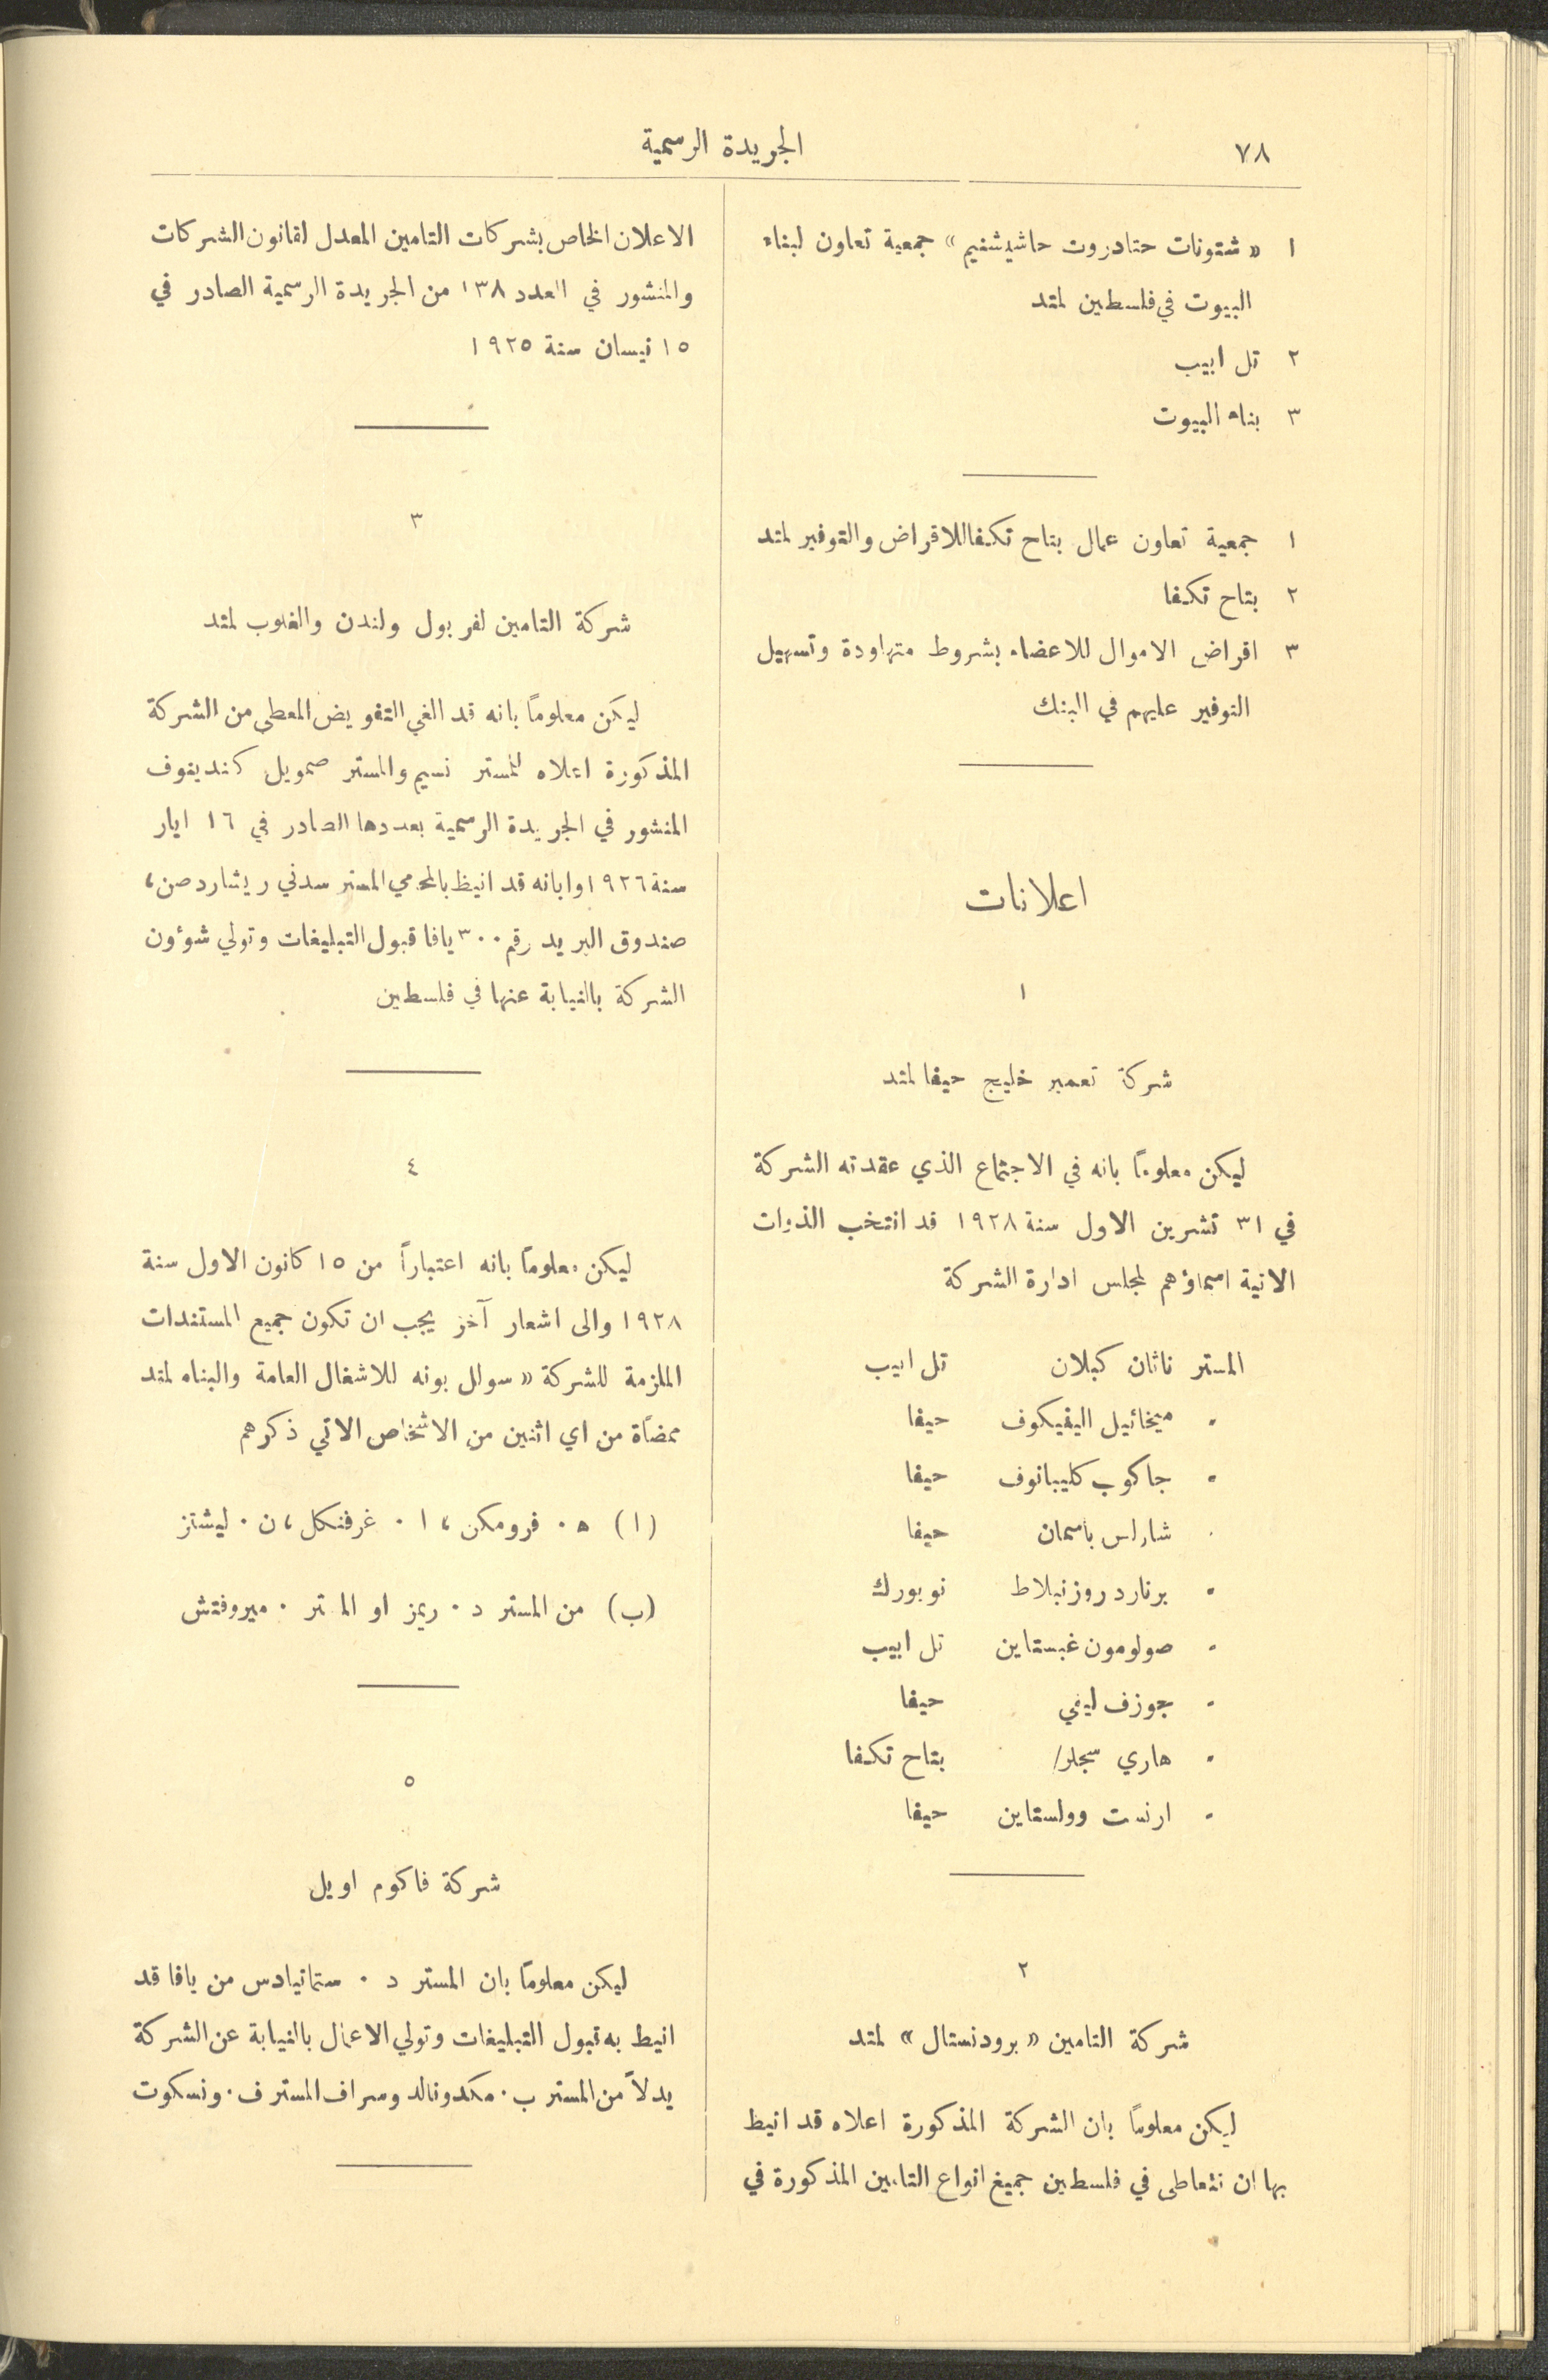 ٧٨
الجريدة الرسمية
١ «شتونات حتادروت حاشيشفيم» جمعية تعاون لبناء
البيوت في فلسطين لمتد
٢ تل ابيب
٣ بناء البيوت
١ جمعية تعاون عمال بتاح تكفا للاقراض والتوفير لمتد
٢ بتاح تكفا
٣ اقراض الاموال للاعضاء بشروط متهاودة وتسهيل
التوفير عليهم في البنك
اعلانات
١
شركة تعمير خليج حيفا لمتد
ليكن معلوماً بانه في الاجتماع الذي عقدته الشركة
في ٣١ تشرين الاول سنة ١٩٢٨ قد انتخب الذوات
الاتية اسماؤهم لمجلس ادارة الشركة
المستر ناثان كبلان تل ابيب
" ميخائيل اليفيكوف حيفا
" جاكوب كليبانوف حيفا
" شارلس باسمان حيفا
" برنارد روزنبلاط نويورك
" صولومون غبستاين تل ابيب
" جوزف ليفي حيفا
" هاري سجلر بتاح تكفا
" ارنست وولستاين حيفا
٢
شركة التامين «برودنستال» لمتد
ليكن معلوماً بان الشركة المذكورة اعلاه قد انيط
بها ان نتعاطى في فلسطين جميع انواع التامين المذكورة في
الاعلان الخاص بشركات التامين المعدل لقانون الشركات
والمنشور في العدد ١٣٨ من الجريدة الرسمية الصادر في
١٥ نيسان سنة ١٩٢٥
٣
شركة التامين لفربول ولندن والغلوب لمتد
ليكن معلوماً بانه قد الغي التفويض المعطى من الشركة
المذكورة اعلاه للمستر نسيم والمستر صمويل كنديفوف
المنشور في الجريدة الرسمية بعددها الصادر في ١٦ ايار
سنة ١٩٢٦ وابانه قد انيظ بالمحامي المستر سدني ريشاردصن،
صندوق البريد رقم ٣٠٠ يافا قبول التبليغات وتولي شوؤن
الشركة بالنيابة عنها في فلسطين
٤
ليكن معلوماً بانه اعتباراً من ١٥ كانون الاول سنة
١٩٢٨ والى اشعار آخر يجب ان تكون جميع المستندات
الملزمة للشركة «سوال بونه للاشغال العامة والبناء لمتد
ممضاة من اي اثنين من الاشخاص الاتي ذكرهم
(ا) ه. فرومكن، ا. غرفنكل، ن. ليشتز
(ب) من المستر د. ريمز او المستر. ميروفتش
٥
شركة فاكوم اويل
ليكن معلوماً بان المستر د. ستماتيادس من يافا قد
انيط به قبول التبليغات وتولي الاعمال بالنيابة عن الشركة
بدلاً من المستر ب. مكدونالد وسراف المستر ف. ونسكوت